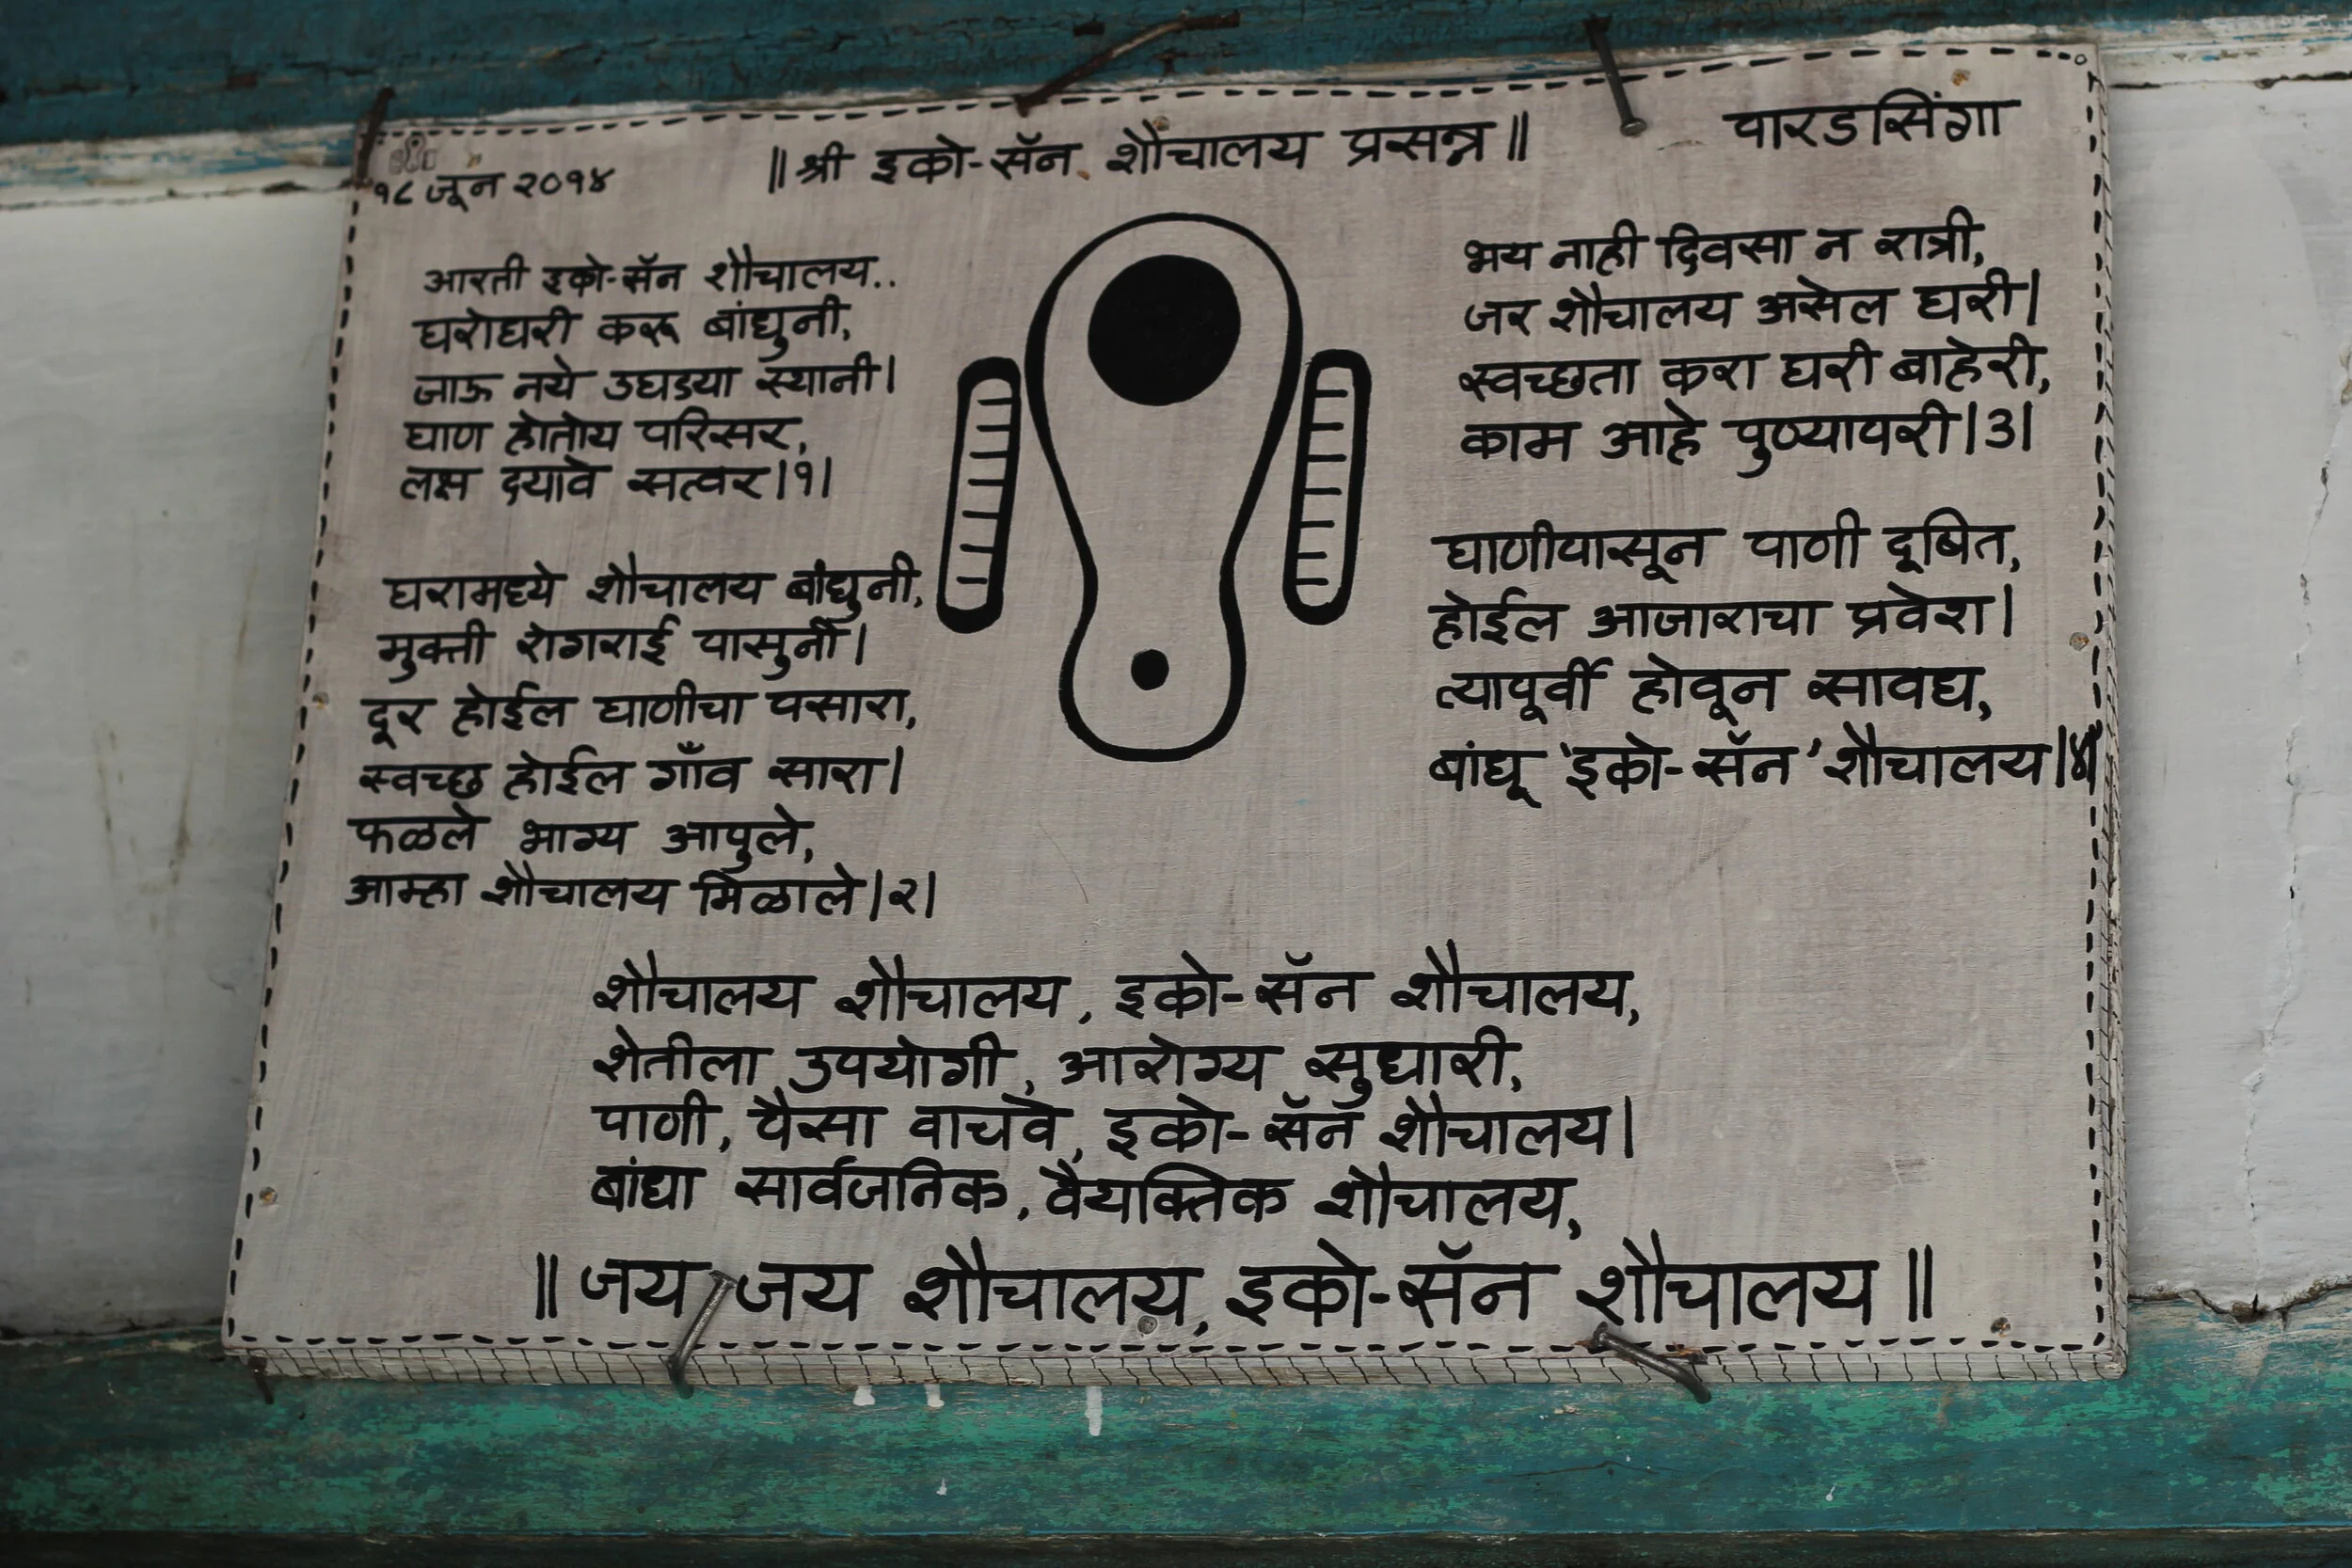 १८ जून २०१४
॥ श्री इको-सॅन शौचालय प्रसन्न ॥
पारडसिंगा
आरती इको-सॅन शौचालय..
घरोघरी करू बांधुनी,
जाऊ नये उघडया स्थानी।
घाण होतोय परिसर,
लक्ष दयावे सत्वर।१।
घरामध्ये शौचालय बांधुनी,
मुक्ती रोगराई पासुनी।
दूर होईल घाणीचा पसारा,
स्वच्छ होईल गाँव सारा।
फळले भाग्य आपुले,
आम्हा शौचालय मिळाले।२।
भय नाही दिवसा न रात्री,
जर शौचालय असेल घरी।
स्वच्छता करा घरी बाहेरी,
काम आहे पुण्यापरी।३।
घाणीपासून पाणी दूषित,
होईल आजाराचा प्रवेश।
त्यापूर्वी होवून सावध,
बांधू 'इको-सॅन' शौचालय।४।
शौचालय शौचालय, इको-सॅन शौचालय,
शेतीला उपयोगी, आरोग्य सुधारी,
पाणी, पैसा वाचवे, इको-सॅन शौचालय।
बांधा सार्वजनिक, वैयक्तिक शौचालय,
॥ जय जय शौचालय, इको-सॅन शौचालय ॥